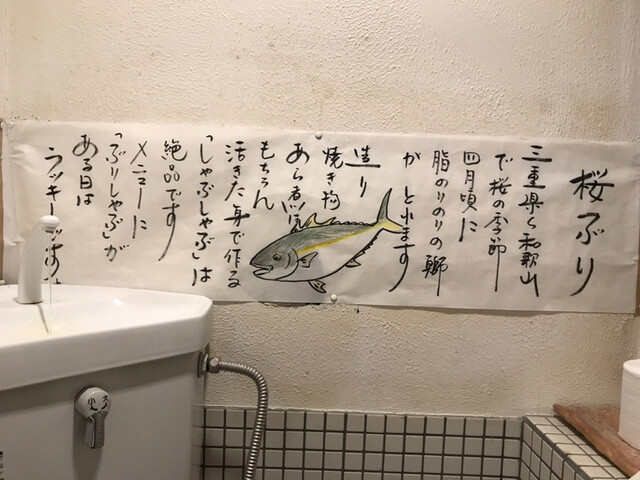 桜ぶり
三重県と和歌山
で桜の季節
四月頃に
脂のりのりの鰤
がとれます
造り
焼き物
あら煮は
もちろん
活きた身で作る
「しゃぶしゃぶ」は
絶品です
メニューに
「ぶりしゃぶ」が
ある日は
ラッキー
大
小